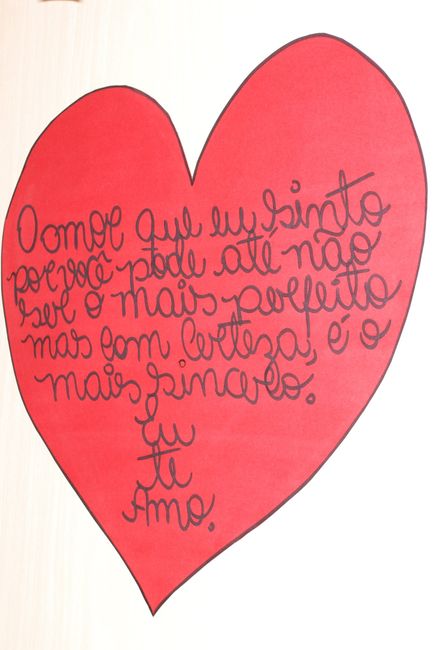 O amor que eu sinto
por você pode até não
ser o mais perfeito
mas com certeza, é o
mais sincero.
Eu
te
Amo.